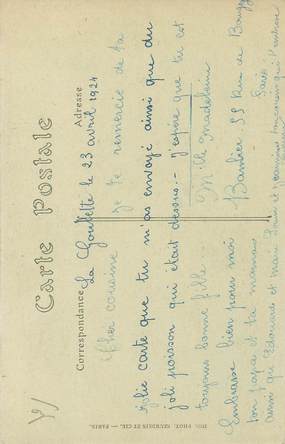 Carte Postale
Correspondance
Adresse
La Goulette le 23 avril 1924
Cher cousine
Je te remercie de ta
jolie carte que tu m'as envoyé ainsi que du
joli poisson qui était dessus. - J'espère que tu est
toujours bonne fille
Embrasse bien pour moi
ton papa et ta maman
ainsi que Edouard et
Mlle Madeleine
Barbier 55 Rue de
Paris
PHOT. NEURDEIN ET CIE. — PARIS.